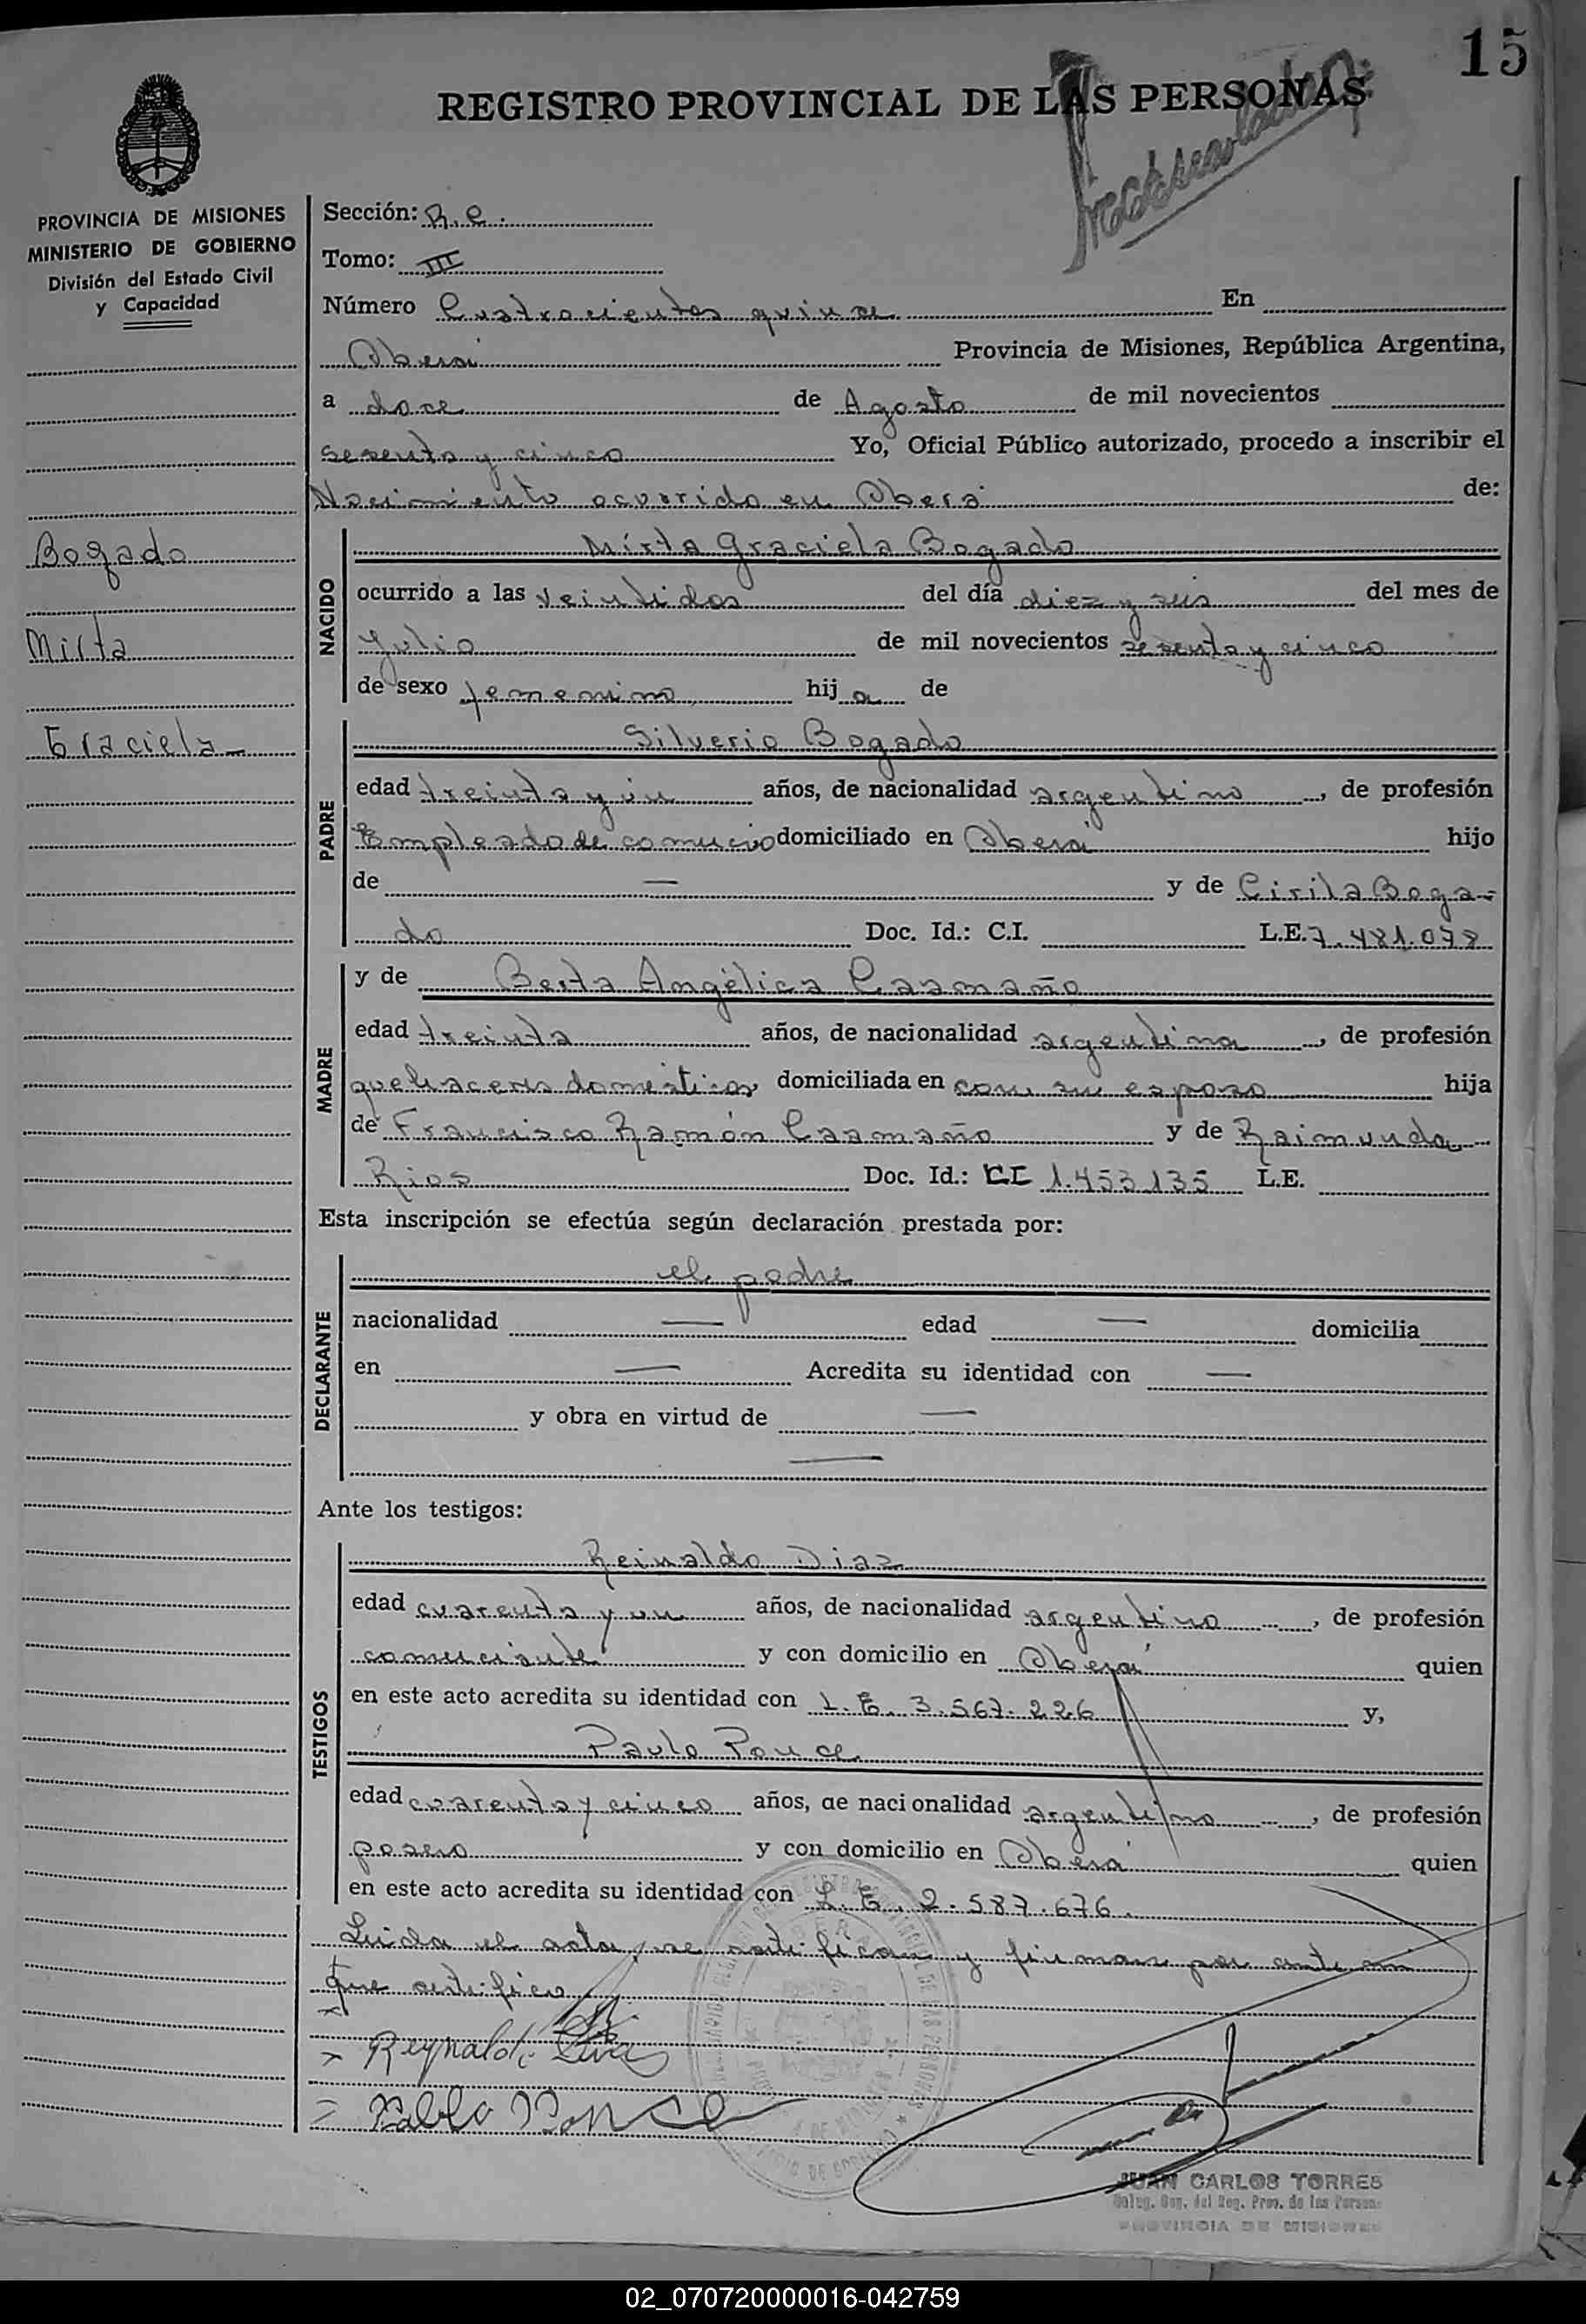 15
REGISTRO PROVINCIAL DE LAS PERSONAS
PROVINCIA DE MISIONES
MINISTERIO DE GOBIERNO
División del Estado Civil
y Capacidad
Bogado
Mirta
Graciela
Sección: R.C.
Tomo: III
Número Cuatrocientos quince En
Oberá Provincia de Misiones, República Argentina,
a doce de Agosto de mil novecientos
sesenta y cinco Yo, Oficial Público autorizado, procedo a inscribir el
Nacimiento ocurrido en Oberá de:
NACIDO
Mirta Graciela Bogado
ocurrido a las veintidos del día diez y seis del mes de
Julio de mil novecientos sesenta y cinco
de sexo femenino hija de
PADRE
Silverio Bogado
edad treinta y un años, de nacionalidad argentino, de profesión
Empleado de comercio domiciliado en Oberá hijo
de — y de Cirila Boga-
do Doc. Id.: C.I. L.E. 7.481.078
MADRE
y de Berta Angélica Caamaño
edad treinta años, de nacionalidad argentina, de profesión
quehaceres domésticos domiciliada en con su esposo hija
de Francisco Ramón Caamaño y de Raimunda
Rios Doc. Id.: CI 1.453.135 L.E.
Esta inscripción se efectúa según declaración prestada por:
DECLARANTE
el padre
nacionalidad — edad — domicilia
en — Acredita su identidad con —
y obra en virtud de —
—
Ante los testigos:
TESTIGOS
Reinaldo Diaz
edad cuarenta y un años, de nacionalidad argentino, de profesión
comerciante y con domicilio en Oberá quien
en este acto acredita su identidad con L.E. 3.567.226 y,
Paulo Ponce
edad cuarenta y cinco años, de nacionalidad argentino, de profesión
posero y con domicilio en Oberá quien
en este acto acredita su identidad con L.E. 2.587.676.
Leida el acta, se ratifican y firman por ante mi
que certifico
Reynaldo
Pablo Ponce
JUAN CARLOS TORRES
Deleg. Gen. del Reg. Prov. de las Personas
PROVINCIA DE MISIONES
02_070720000016-042759